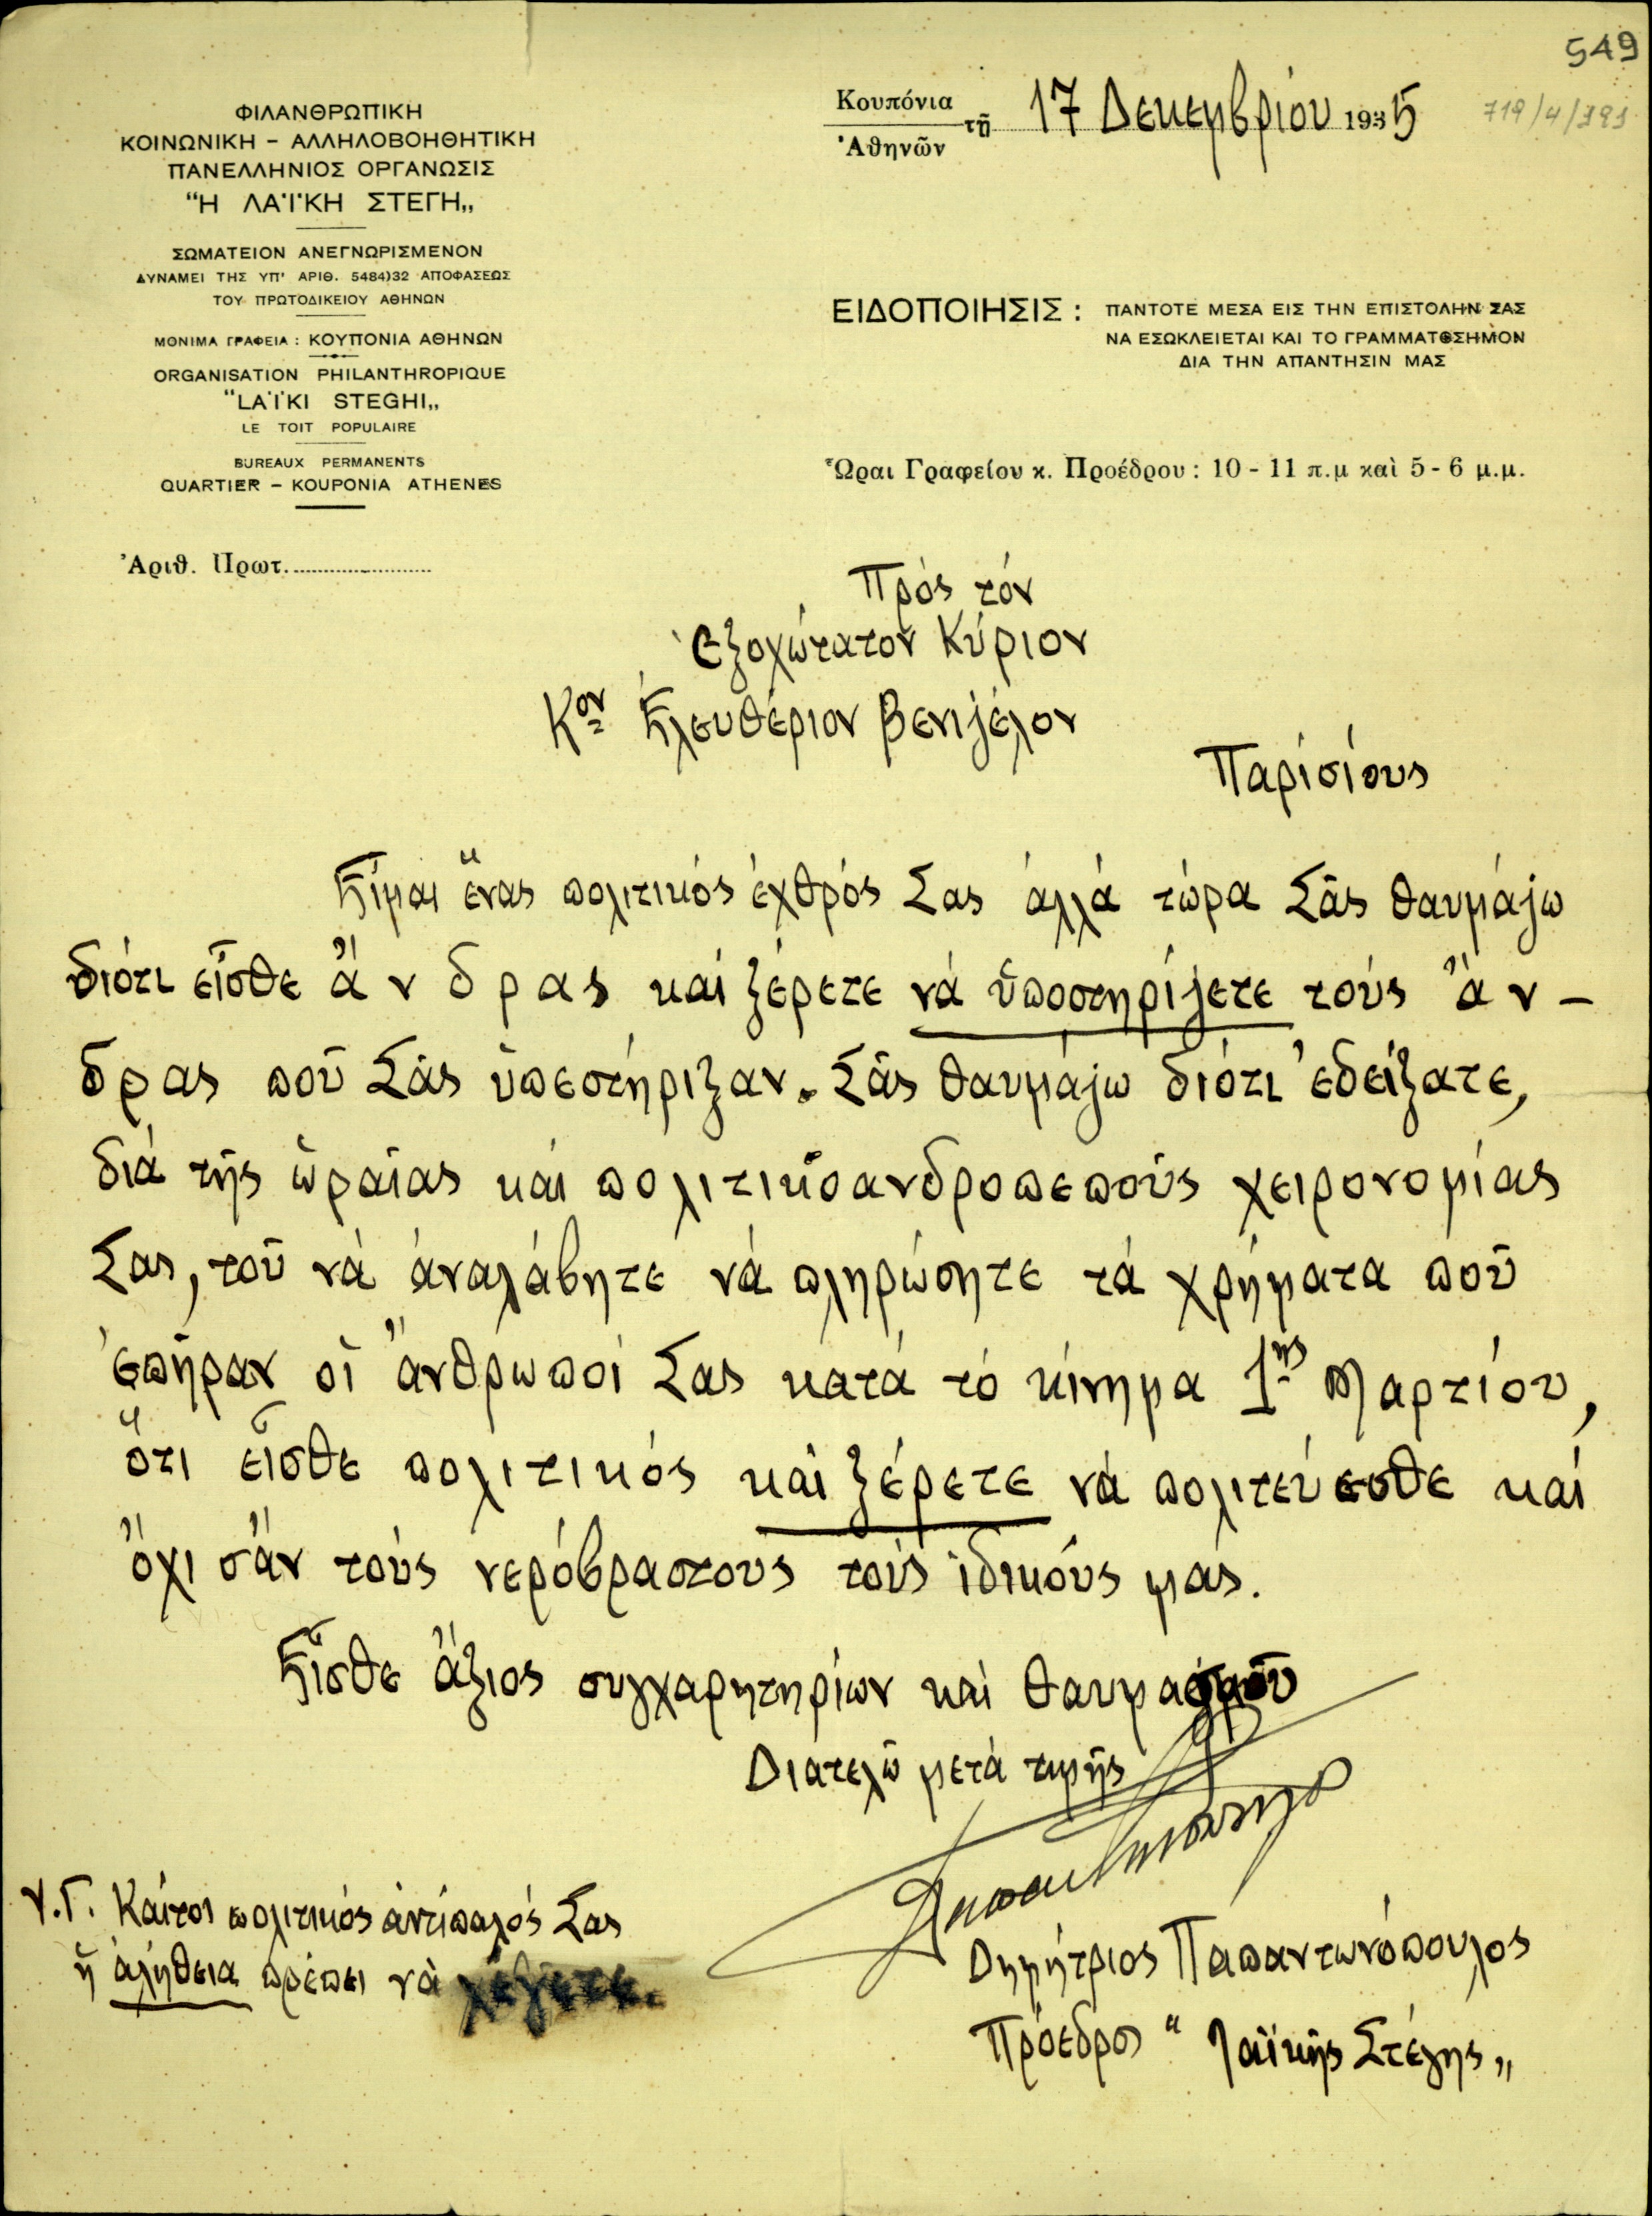 549
719/4/391
ΦΙΛΑΝΘΡΩΠΙΚΗ
ΚΟΙΝΩΝΙΚΗ – ΑΛΛΗΛΟΒΟΗΘΗΤΙΚΗ
ΠΑΝΕΛΛΗΝΙΟΣ ΟΡΓΑΝΩΣΙΣ
“Η ΛΑΪΚΗ ΣΤΕΓΗ„
ΣΩΜΑΤΕΙΟΝ ΑΝΕΓΝΩΡΙΣΜΕΝΟΝ
ΔΥΝΑΜΕΙ ΤΗΣ ΥΠ' ΑΡΙΘ. 5484)32 ΑΠΟΦΑΣΕΩΣ
ΤΟΥ ΠΡΩΤΟΔΙΚΕΙΟΥ ΑΘΗΝΩΝ
ΜΟΝΙΜΑ ΓΡΑΦΕΙΑ : ΚΟΥΠΟΝΙΑ ΑΘΗΝΩΝ
ORGANISATION PHILANTHROPIQUE
“LAÏKI STEGHI„
LE TOIT POPULAIRE
BUREAUX PERMANENTS
QUARTIER – KOUPONIA ATHENES
Ἀριθ. Πρωτ.
Κουπόνια
Ἀθηνῶν
τῇ 17 Δεκεμβρίου 1935
ΕΙΔΟΠΟΙΗΣΙΣ : ΠΑΝΤΟΤΕ ΜΕΣΑ ΕΙΣ ΤΗΝ ΕΠΙΣΤΟΛΗΝ ΣΑΣ
ΝΑ ΕΣΩΚΛΕΙΕΤΑΙ ΚΑΙ ΤΟ ΓΡΑΜΜΑΤΟΣΗΜΟΝ
ΔΙΑ ΤΗΝ ΑΠΑΝΤΗΣΙΝ ΜΑΣ
Ὧραι Γραφείου κ. Προέδρου : 10 - 11 π.μ καὶ 5 - 6 μ.μ.
Πρός τόν
Ἐξοχώτατον Κύριον
Κον Ἐλευθέριον Βενιζέλον
Παρισίους
Εἶμαι ἕνας πολιτικός ἐχθρός Σας ἀλλά τώρα Σᾶς θαυμάζω
διότι εἶσθε ἄ ν δ ρ α ς καί ξέρετε νά ὑποστηρίζετε τούς ἄ ν –
δ ρ α ς ποῦ Σᾶς ὑπεστήριξαν. Σᾶς θαυμάζω διότι ἐδείξατε,
διά τῆς ὡραίας καί πολιτικοανδροπεποῦς χειρονομίας
Σας, τοῦ νά ἀναλάβητε νά πληρώσητε τά χρήματα ποῦ
ἐπῆραν οἱ ἄνθρωποί Σας κατά τό κίνημα 1ης Μαρτίου,
ὅτι εἶσθε πολιτικός καί ξέρετε νά πολιτεύεσθε καί
ὄχι σἄν τούς νερόβραστους τούς ἰδικούς μας.
Εἶσθε ἄξιος συγχαρητηρίων καί θαυμασμοῦ
Διατελῶ μετά τιμῆς
Δημήτριος Παπαντωνόπουλος
Πρόεδρος “Λαϊκῆς Στέγης„
Υ.Γ. Καίτοι πολιτικός ἀντίπαλός Σας
ἡ ἀλήθεια πρέπει νὰ λέγεται.